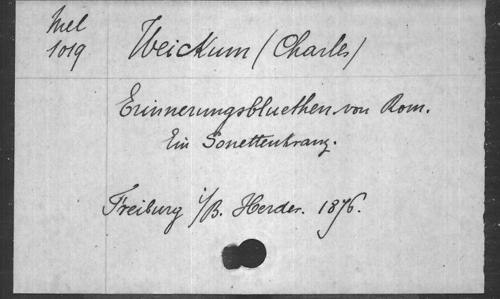 Mel
1019
Weickum (Charles)
Erinnerungsbluethen von Rom.
Ein Sonettenkranz.
Freiburg i/B. Herder. 1876.